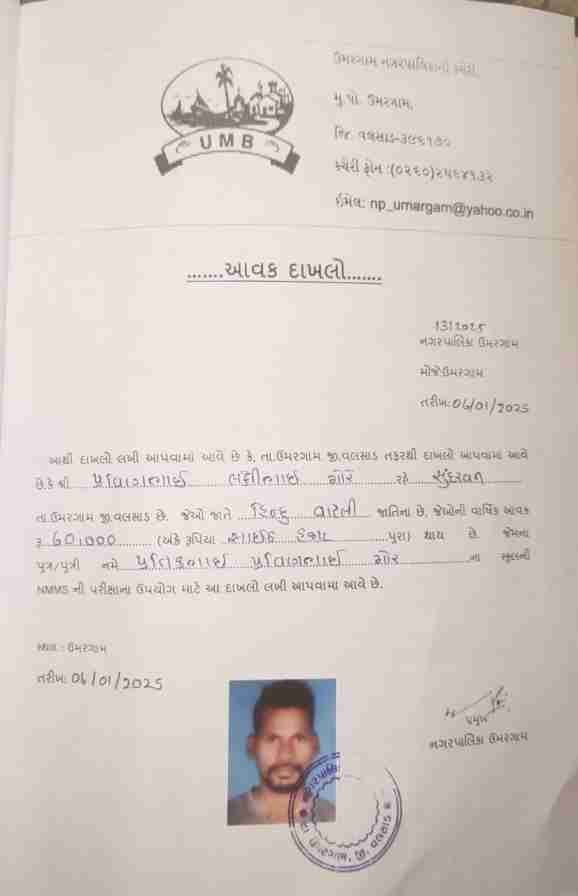 UMB
ઉમરગામ નગરપાલિકાની કચેરી,
મુ.પો. ઉમરગામ,
જિ. વલસાડ-૩૯૬૧૭૦
કચેરી ફોન :(૦૨૬૦)૨૫૬૪૧૩૨
ઈમેલ: np_umargam@yahoo.co.in
.......આવક દાખલો.......
1312025
નગરપાલિકા ઉમરગામ
મોજે.ઉમરગામ
તારીખ:06/01/2025
આથી દાખલો લખી આપવામાં આવે છે કે, તા.ઉમરગામ જી.વલસાડ તરફથી દાખલો આપવામાં આવે
છે.કે શ્રી પ્રવિણભાઈ લક્ષીભાઈ મોરે રહે સુંદરવન
તા.ઉમરગામ જી.વલસાડ છે. જેઓ જાતે ...હિન્દુ વારલી જાતિના છે. જેઓની વાર્ષિક આવક
રૂ 60,000 (અંકે રૂપિયા સાઈઠ હજાર પુરા) થાય છે. જેમના
પુત્ર/પુત્રી નામે પ્રતિકભાઈ પ્રવિણભાઈ મોર ના સ્કુલની
NMMS ની પરીક્ષાના ઉપયોગ માટે આ દાખલો લખી આપવામાં આવે છે.
સ્થળ : ઉમરગામ
તારીખ: 06/01/2025
પ્રમુખ
નગરપાલિકા ઉમરગામ
જી. વલસાડ